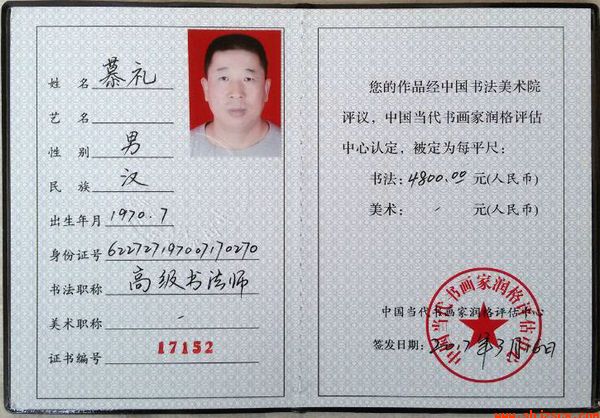 姓名 慕礼
艺名
性别 男
民族 汉
出生年月 1970.7
身份证号 622727197007170270
书法职称 高级书法师
美术职称 -
证书编号 17152
您的作品经中国书法美术院
评议，中国当代书画家润格评估
中心认定，被定为每平尺：
书法：4800.00 元(人民币)
美术： - 元(人民币)
中国当代书画家润格评估中心
签发日期：2017年3月16日
中国当代书画家润格评估中心